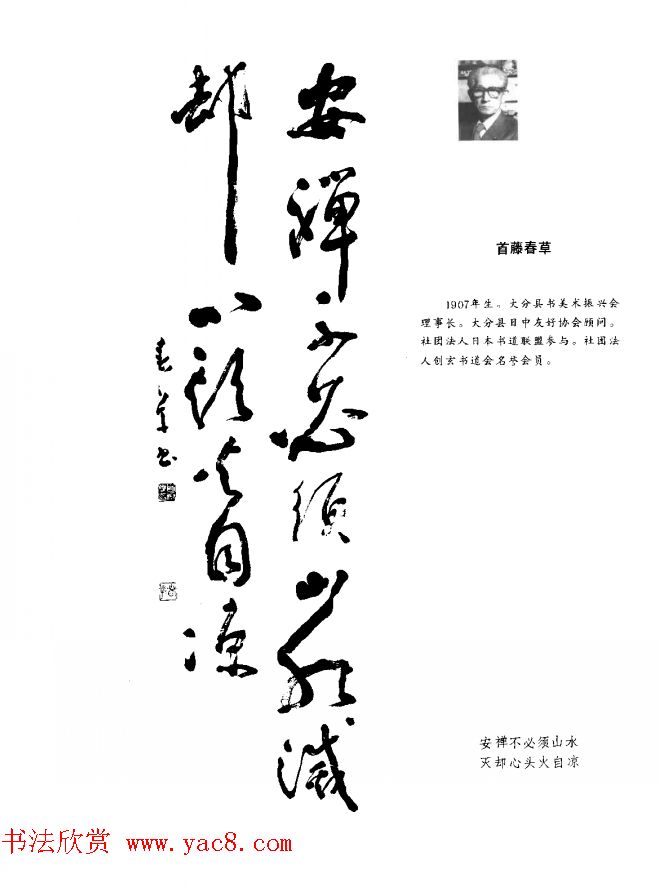 安禅不必须山水灭
却心头火自凉
春草书
首藤春草
1907年生。大分县书美术振兴会
理事长。大分县日中友好协会顾问。
社团法人日本书道联盟参与。社团法
人创玄书道会名誉会员。
安禅不必须山水
灭却心头火自凉
书法欣赏 www.yac8.com